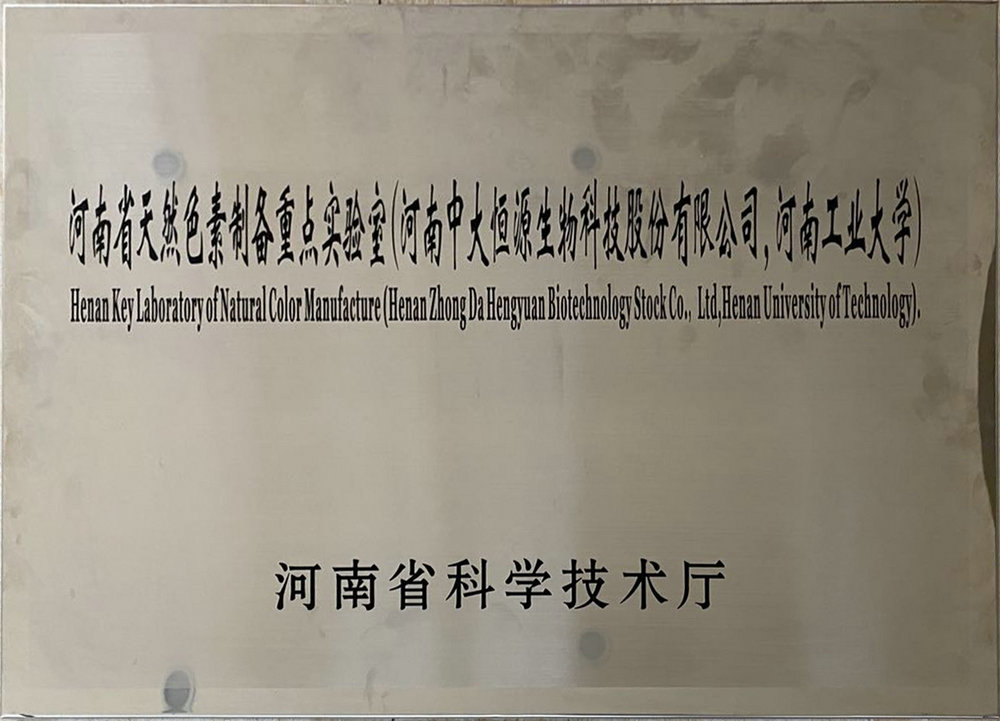 河南省天然色素制备重点实验室(河南中大恒源生物科技股份有限公司,河南工业大学)
Henan Key Laboratory of Natural Color Manufacture (Henan Zhong Da Hengyuan Biotechnology Stock Co., Ltd,Henan University of Technology).
河南省科学技术厅